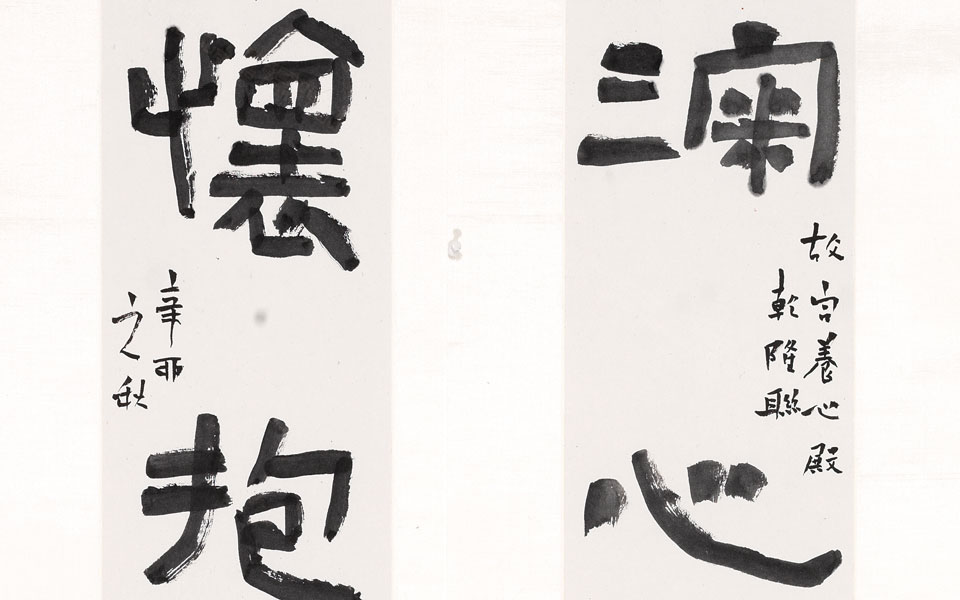 深心
故宫養心殿
乾隆聯
懷抱
辛酉
之秋